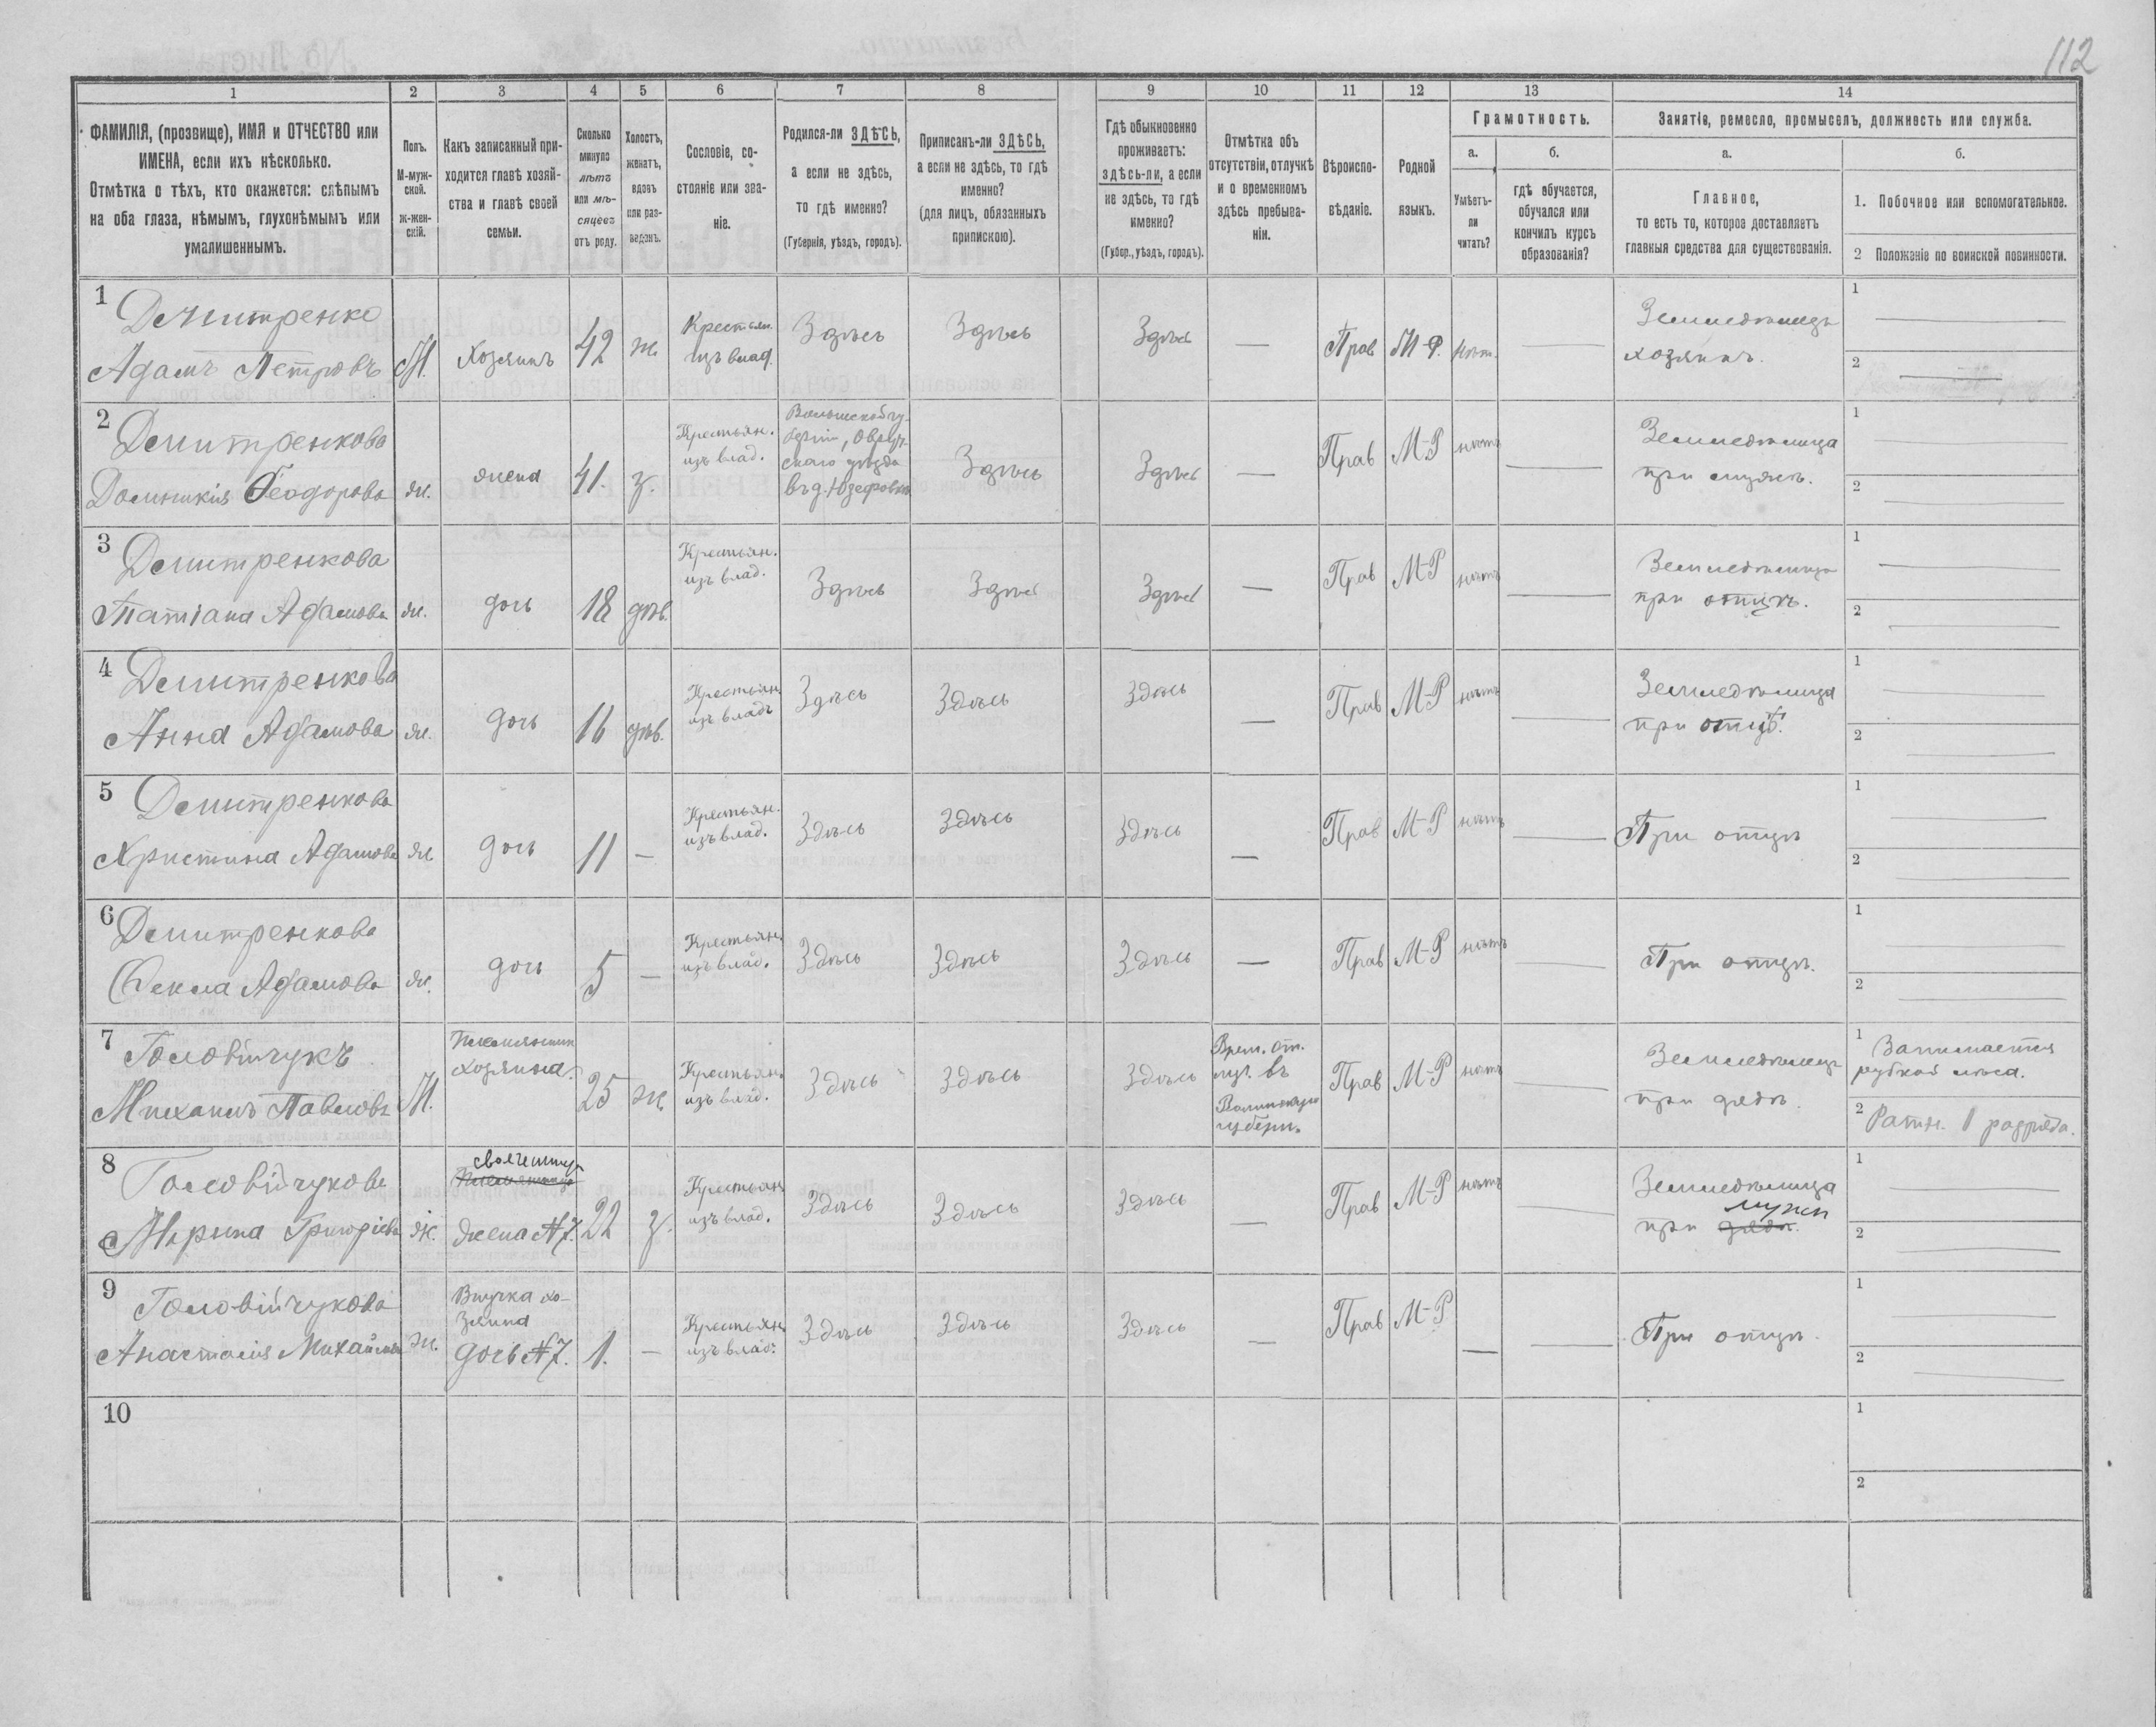 112
1 2 3 4 5 6 7 8 9 10 11 12 13 14
ФАМИЛІЯ, (прозвище), ИМЯ и ОТЧЕСТВО или
ИМЕНА, если ихъ нѣсколько.
Отмѣтка о тѣхъ, кто окажется: слѣпымъ
на оба глаза, нѣмымъ, глухонѣмымъ или
умалишеннымъ.
Полъ.
М-муж-
ской.
ж-жен-
скій.
Какъ записанный при-
ходится главѣ хозяй-
ства и главѣ своей
семьи.
Сколько
минуло
лѣтъ
или мѣ-
сяцевъ
отъ роду.
Холостъ,
женатъ,
вдовъ
или раз-
веденъ.
Сословіе, со-
стояніе или зва-
ніе.
Родился-ли ЗДѢСЬ,
а если не здѣсь,
то гдѣ именно?
(Губернія, уѣздъ, городъ).
Приписанъ-ли ЗДѢСЬ,
а если не здѣсь, то гдѣ
именно?
(для лицъ, обязанныхъ
припискою).
Гдѣ обыкновенно
проживаетъ:
здѣсь-ли, а если
не здѣсь, то гдѣ
именно?
(Губер., уѣздъ, городъ).
Отмѣтка объ
отсутствіи, отлучкѣ
и о временномъ
здѣсь пребыва-
ніи.
Вѣроиспо-
вѣданіе.
Родной
языкъ.
Грамотность.
а.
Умѣетъ-
ли
читать?
б.
гдѣ обучается,
обучался или
кончилъ курсъ
образованія?
Занятіе, ремесло, промыселъ, должность или служба.
а.
Главное,
то есть то, которое доставляетъ
главныя средства для существованія.
б.
1. Побочное или вспомогательное.
2 Положеніе по воинской повинности.
1
Демитренко
Адамъ Петровъ
М.
Хозяинъ
42
ж
Крестьян.
изъ влад.
Здѣсь
Здѣсь
Здѣсь
—
Прав
М-Р.
нѣт.
—
Земледѣлецъ
хозяинъ.
1 —
2 —
2
Демитренкова
Домникія Феодорова
ж.
жена
41.
з.
Крестьян.
изъ влад.
Волынской гу-
берніи, Овруч-
скаго уѣзда
въ д. Юзефовкѣ
Здѣсь
Здѣсь
—
Прав
М-Р
нѣтъ
—
Земледѣлица
при мужѣ.
1 —
2 —
3
Демитренкова
Татіана Адамова
ж.
дочь
18
дѣв.
Крестьян.
изъ влад.
Здѣсь
Здѣсь
Здѣсь
—
Прав
М-Р
нѣтъ
—
Земледѣлица
при отцѣ.
1 —
2 —
4
Демитренкова
Анна Адамова
ж.
дочь
16
дѣв.
Крестьян.
изъ владъ
Здѣсь
Здѣсь
Здѣсь
—
Прав
М-Р
нѣтъ
—
Земледѣлица
при отцѣ.
1 —
2 —
5
Демитренкова
Христина Адамова
ж.
дочь
11
—
Крестьян.
изъ влад.
Здѣсь
Здѣсь
Здѣсь
—
Прав
М-Р
нѣтъ
—
При отцѣ
1 —
2 —
6
Демитренкова
Фекла Адамова
ж.
дочь
5
—
Крестьян.
изъ влад.
Здѣсь
Здѣсь
Здѣсь
—
Прав
М-Р
нѣтъ
—
При отцѣ.
1 —
2 —
7
Головійчукъ
Михаилъ Павловъ
М.
Племянник
хозяина.
25
ж
Крестьян.
изъ влад.
Здѣсь
Здѣсь
Здѣсь
Врем. от.
луч. въ
Волынскую
губерн.
Прав
М-Р
нѣтъ
—
Земледѣлецъ
при дядѣ.
1 Занимается
рубкой лѣса.
2 Ратн. 1 разряда.
8
Головійчукова
Марина Григорієва
ж.
жена №7.
22
з.
Крестьян.
изъ влад.
Здѣсь
Здѣсь
Здѣсь
—
Прав
М-Р
нѣтъ
—
Земледѣлица
мужѣ
при дядѣ.
1 —
2 —
9
Головійчукова
Анастасія Михайлова
ж.
Внучка хо-
зяина
дочь №7.
1.
—
Крестьян.
изъ влад.
Здѣсь
Здѣсь
Здѣсь
—
Прав
М-Р
—
—
При отцѣ.
1 —
2 —
10
1
2